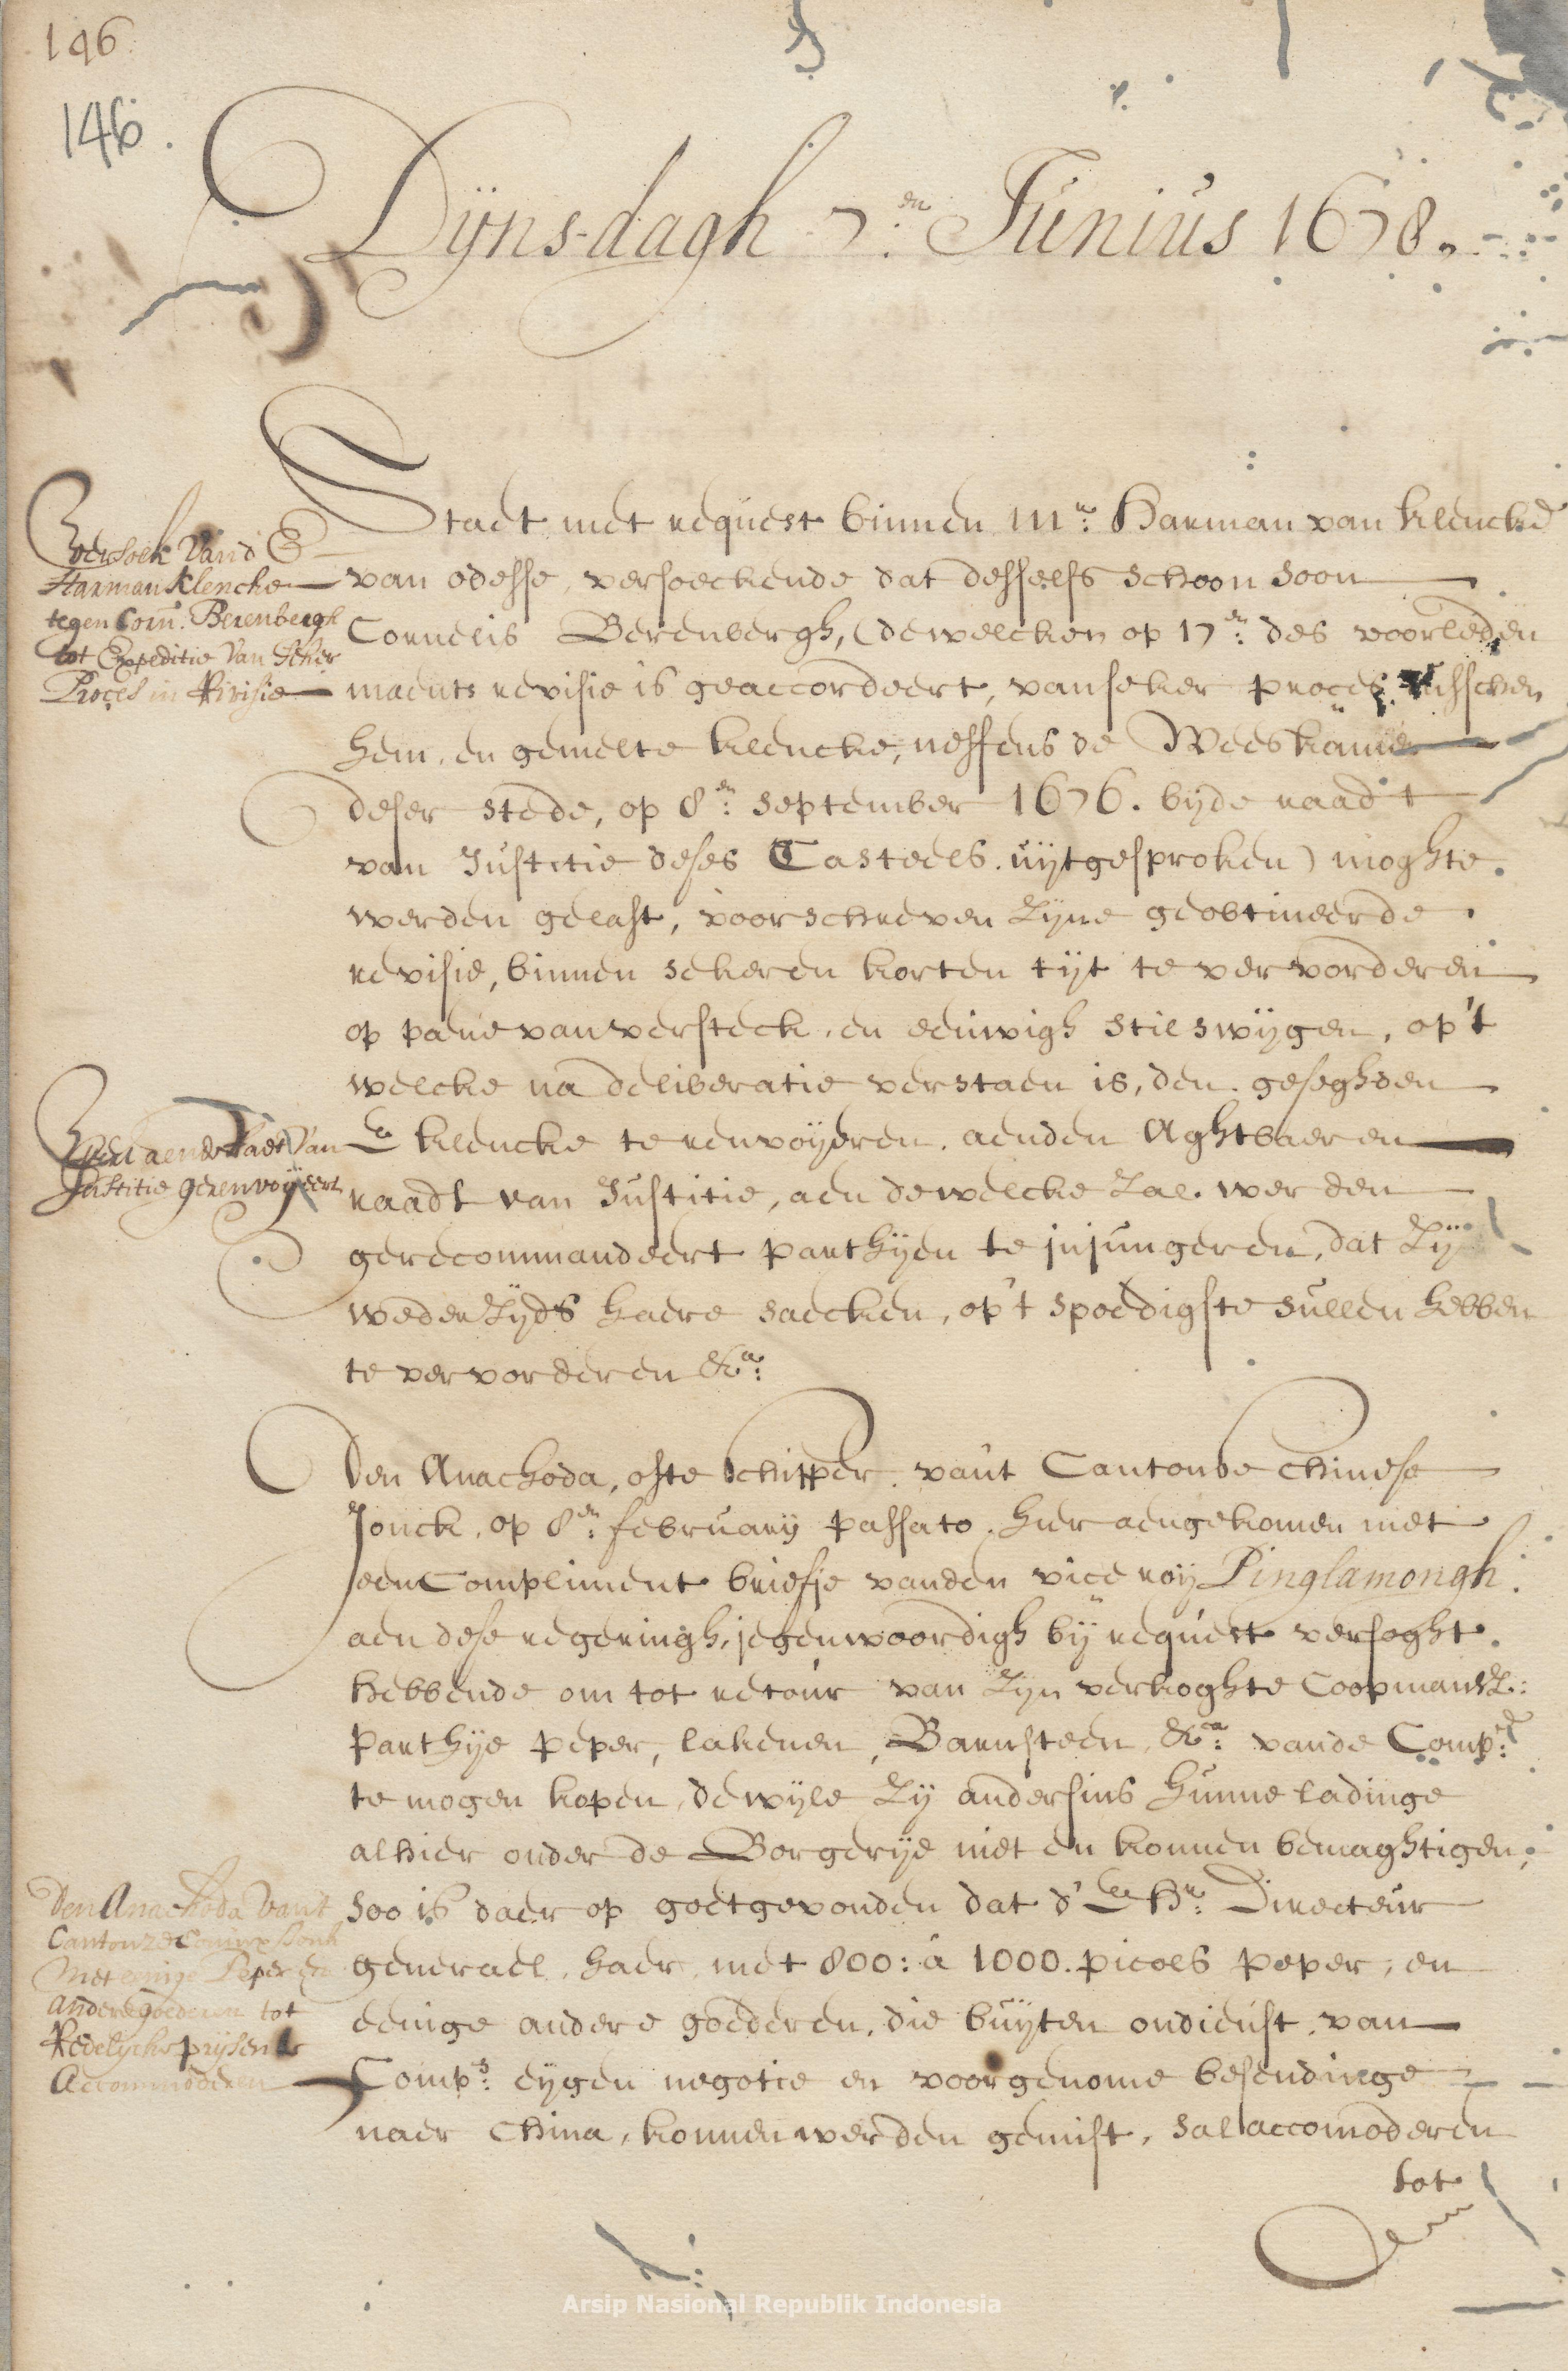 146
146.
Dÿns-dagh 7:en Junius 1678.
Staet met request binnen Mr: Harman van Klencke
van odesse, versoeckende dat desselfs schoon soon
Cornelis Berenbergh, (dewelcken op 17en: des voorleden
maents revisie is geaccordeert, van seker proces tusschen
hem, en gemelte Klencke, neffens de Weeskamer
deser stede, op 8en: September 1676. byde raadt
van Justitie deses Casteels uÿtgesproken) moghte
werden gelast, voorschreven zyne geobtineerde
revisie, binnen sekeren korten tyt te vervorderen
op pene van versteck, en eeuwigh stilswÿgen, op't
welcke na deliberatie verstaen is, den geseghden
E Klencke te renvoÿeren aenden Aghtbaeren
raadt van Justitie, aen dewelcke zal werden
gerecommandeert parthÿen te injungeren, dat zÿ
wederzÿds haere saecken, op't spoedigste sullen hebben
te vervorderen &a:
Den Anachoda, ofte schipper van't Cantonse Chinese
Jonck, op 8en: february passato hier aengekomen met
een Compliment briefje vanden vice roÿ Pinglamongh
aen dese regeringh, jegenwoordigh bÿ request versoght
hebbende om tot retour van zyn verkoghte Coopmansz:
parthÿe peper, lakenen, Barnsteen &a: vande Compe:
te mogen kopen, dewÿle zÿ andersins hunne ladinge
alhier onder de Borgerÿe niet en konnen bemaghtigen,
soo is daer op goetgevonden dat d'Ed Hr: Directeur
generael, haer met 800: à 1000. picols peper, en
eenige andere goederen, die buÿten ondienst van
Comps: eÿgen negotie en voorgenome besendinge
naer China, konnen werden gemist, sal accomoderen
tot
Versoek van d' E
Harman Klencke
tegen Corn. Berenbergh
tot Expeditie van Seker
Proces in Rivisie
Wert aende Raet van
Justitie gerenvoÿeert
Den Anachoda vant
Cantonze Jonk
Met eenige Peper en
andere goederen tot
Redelycke prysen te
Accommoderen
Arsip Nasional Republik Indonesia